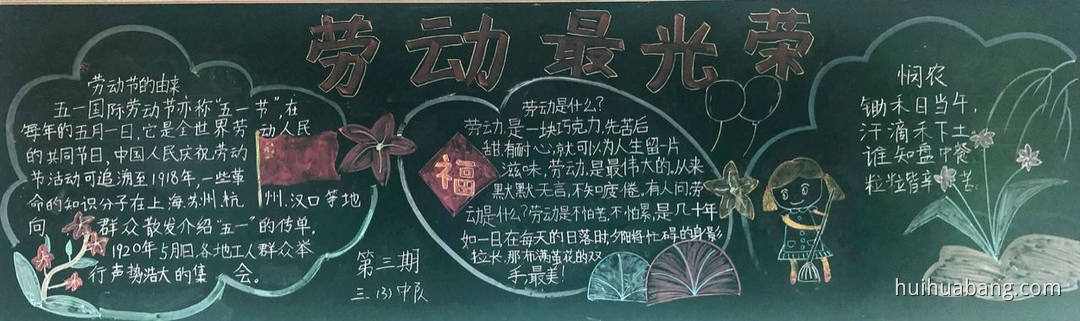 劳动最光荣
劳动节的由来
五一国际劳动节亦称"五一节",在
每年的五月一日,它是全世界劳动人民
的共同节日,中国人民庆祝劳动
节活动可追溯至1918年,一些革
命的知识分子在上海、苏州、杭州、汉口等地
向群众散发介绍"五一"的传单.
1920年5月1日,各地工人群众举
行声势浩大的集会。
第三期
三.(3)中队
劳动是什么?
劳动,是一块巧克力,先苦后
甜,有耐心,就可以为人生留一片
滋味,劳动,是最伟大的,从来
默默无言,不知疲倦.有人问劳
动是什么?劳动是不怕苦,不怕累,是几十年
如一日,在每天的日落时,夕阳将忙碌的身影
拉长,那布满茧花的双
手,最美!
福
悯农
锄禾日当午,
汗滴禾下土
谁知盘中餐
粒粒皆辛苦
huihuabang.com